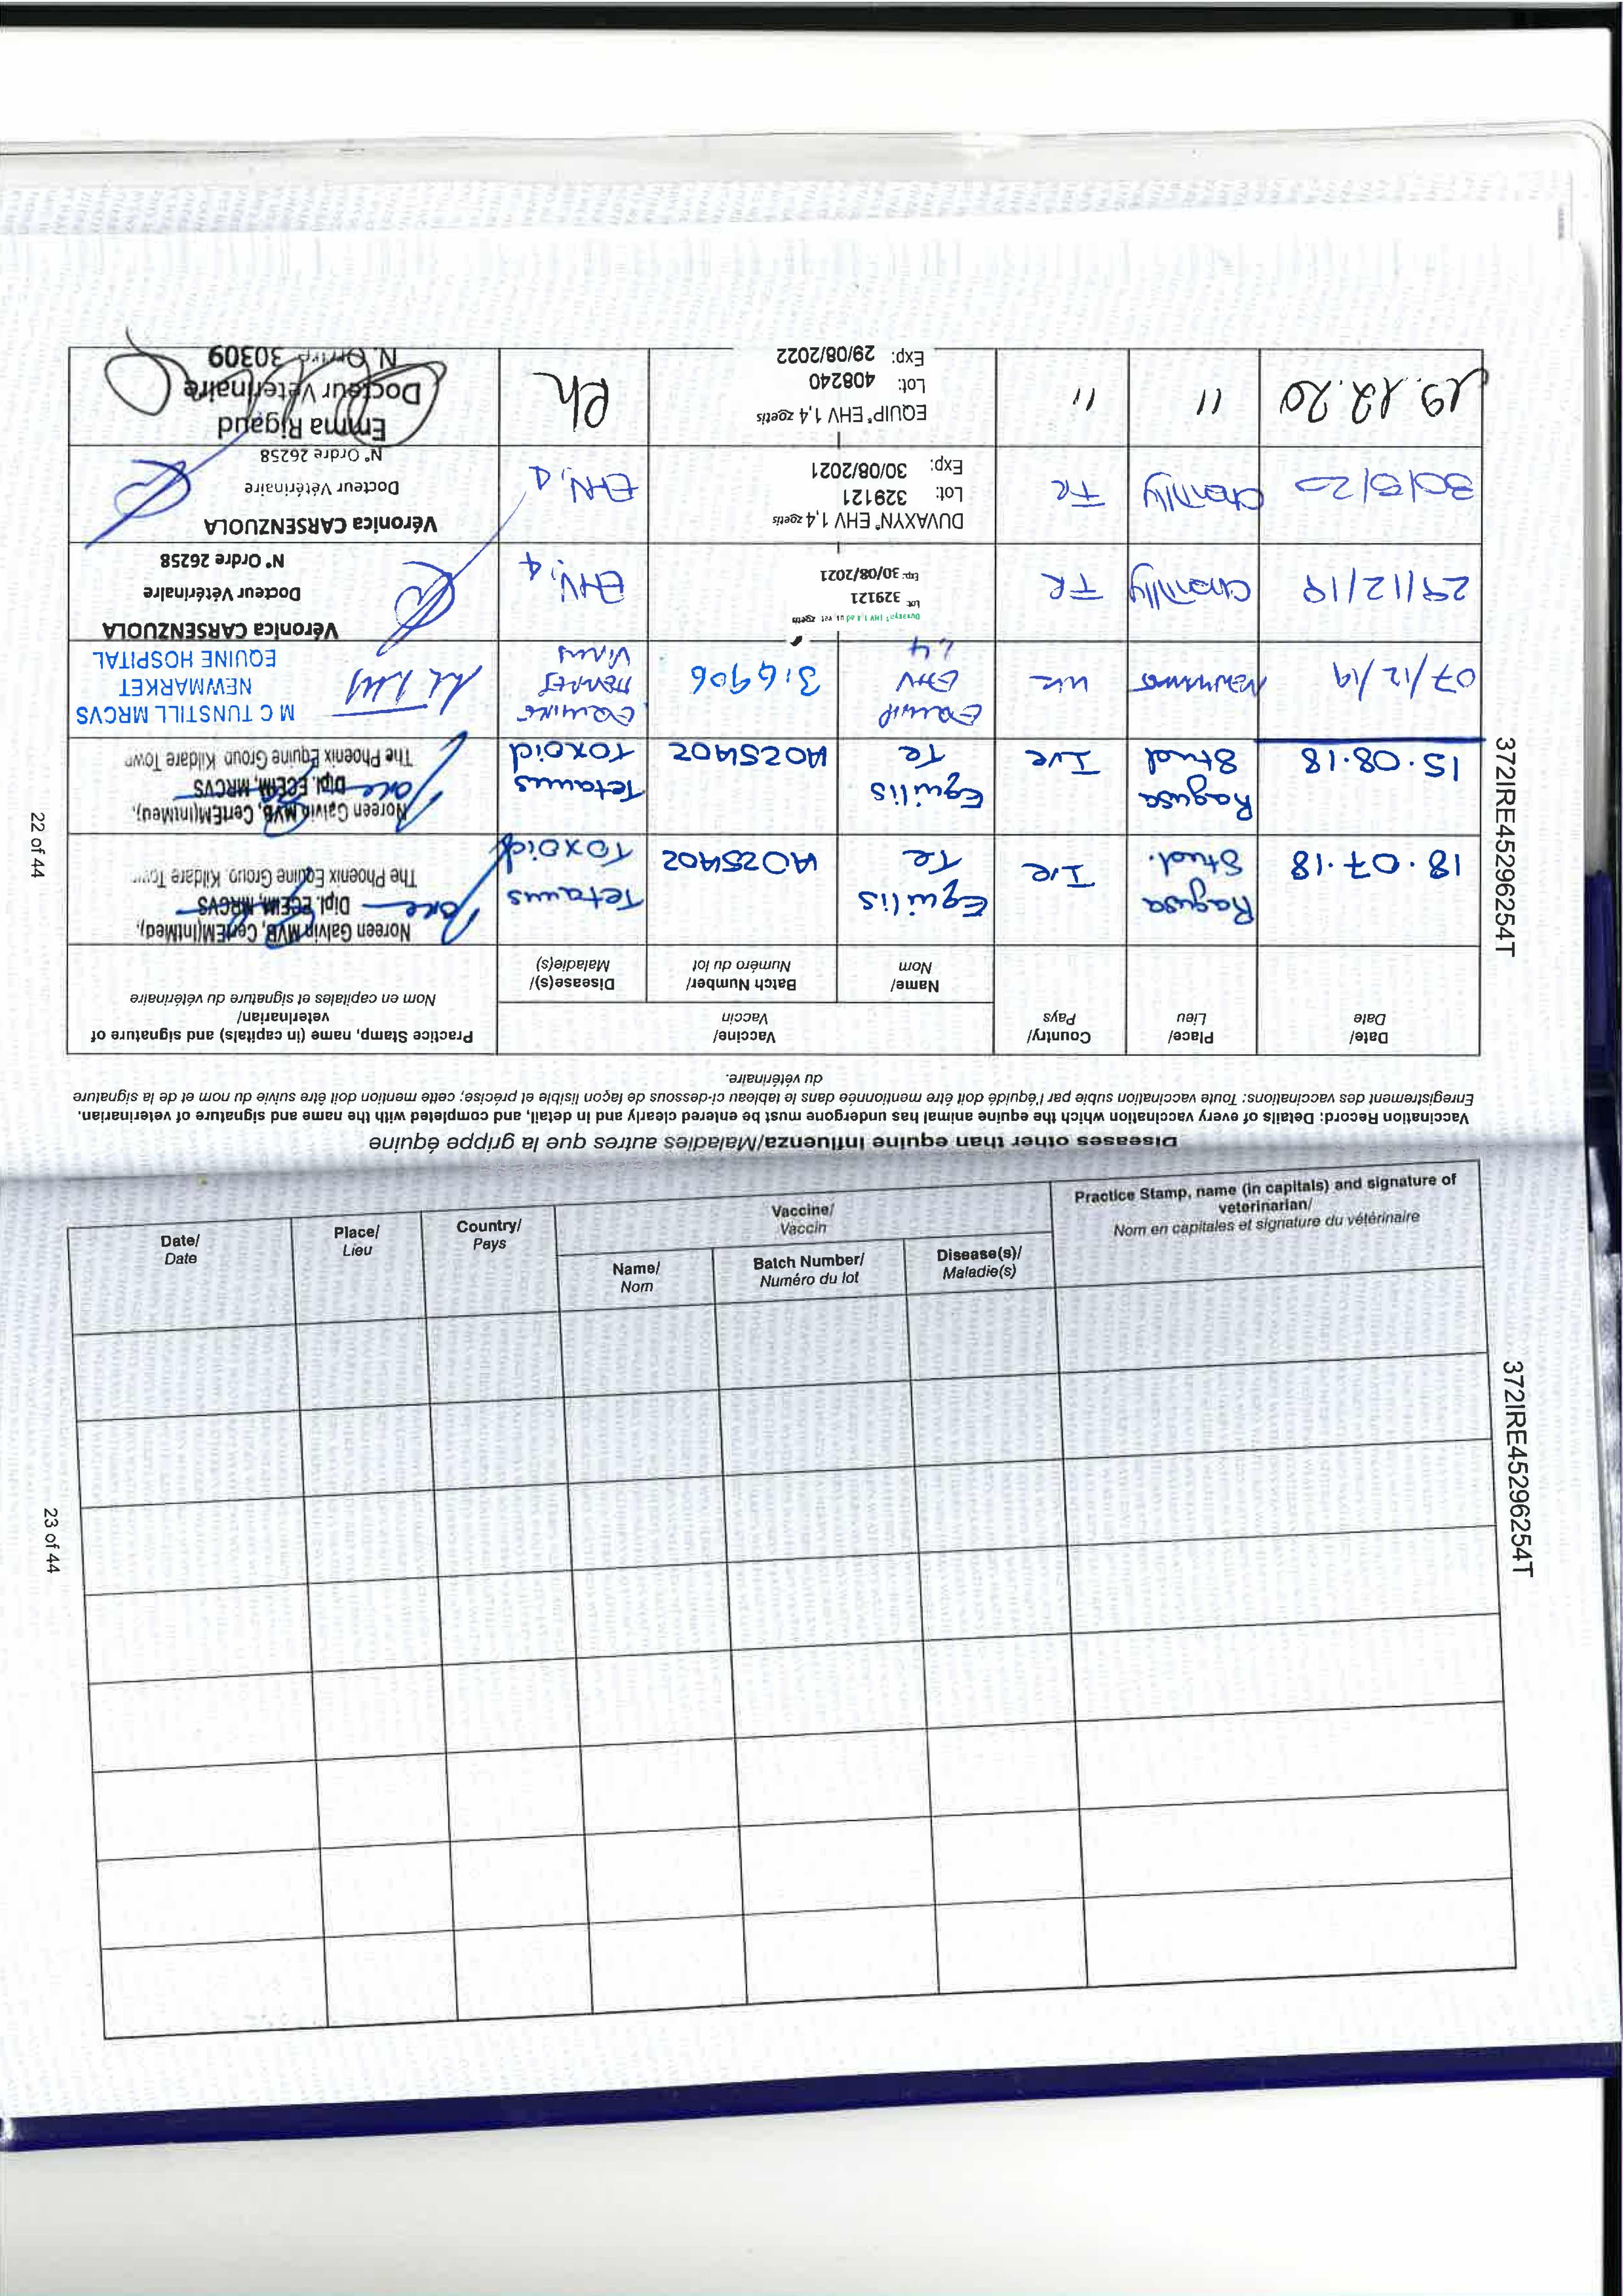 Diseases other than equine influenza/Maladies autres que la grippe équine
Vaccination Record: Details of every vaccination which the equine animal has undergone must be entered clearly and in detail, and completed with the name and signature of veterinarian.
Enregistrement des vaccinations: Toute vaccination subie par l'équidé doit être mentionnée dans le tableau ci-dessous de façon lisible et précise; cette mention doit être suivie du nom et de la signature
du vétérinaire.
Date/
Date
Place/
Lieu
Country/
Pays
Vaccine/
Vaccin
Name/
Nom
Batch Number/
Numéro du lot
Disease(s)/
Maladie(s)
Practice Stamp, name (in capitals) and signature of
veterinarian/
Nom en capitales et signature du vétérinaire
18.07.18
Ragusa
Stud.
Ire
Equilis
Te
A025A02
Tetanus
Toxoid
Noreen Galvin MVB, CertEM(IntMed),
Dipl. ECEIM, MRCVS
The Phoenix Equine Group, Kildare Town
15.08.18
Ragusa
Stud
Ire
Equilis
Te
A025A02
Tetanus
Toxoid
Noreen Galvin MVB, CertEM(IntMed),
Dipl. ECEIM, MRCVS
The Phoenix Equine Group, Kildare Town
07/12/19
UK
Equip
EHV
1,4
316906
Equine
Herpes
Virus
M C TUNSTILL MRCVS
NEWMARKET
EQUINE HOSPITAL
29/12/19
Chantilly
FR
Duvaxyn® EHV 1,4 zoetis
Lot: 329121
Exp: 30/08/2021
EHV1,4
Véronica CARSENZUOLA
Docteur Vétérinaire
N° Ordre 26258
30/5/20
Chantilly
FR
DUVAXYN® EHV 1,4 zoetis
Lot: 329121
Exp: 30/08/2021
EHV1,4
Véronica CARSENZUOLA
Docteur Vétérinaire
N° Ordre 26258
19.12.20
"
"
EQUIP® EHV 1,4 zoetis
Lot: 408240
Exp: 29/08/2022
Rh
Emma Rigaud
Docteur Vétérinaire
N. Ordre 30309
372IRE45296254T
22 of 44
Date/
Date
Place/
Lieu
Country/
Pays
Vaccine/
Vaccin
Name/
Nom
Batch Number/
Numéro du lot
Disease(s)/
Maladie(s)
Practice Stamp, name (in capitals) and signature of
veterinarian/
Nom en capitales et signature du vétérinaire
372IRE45296254T
23 of 44